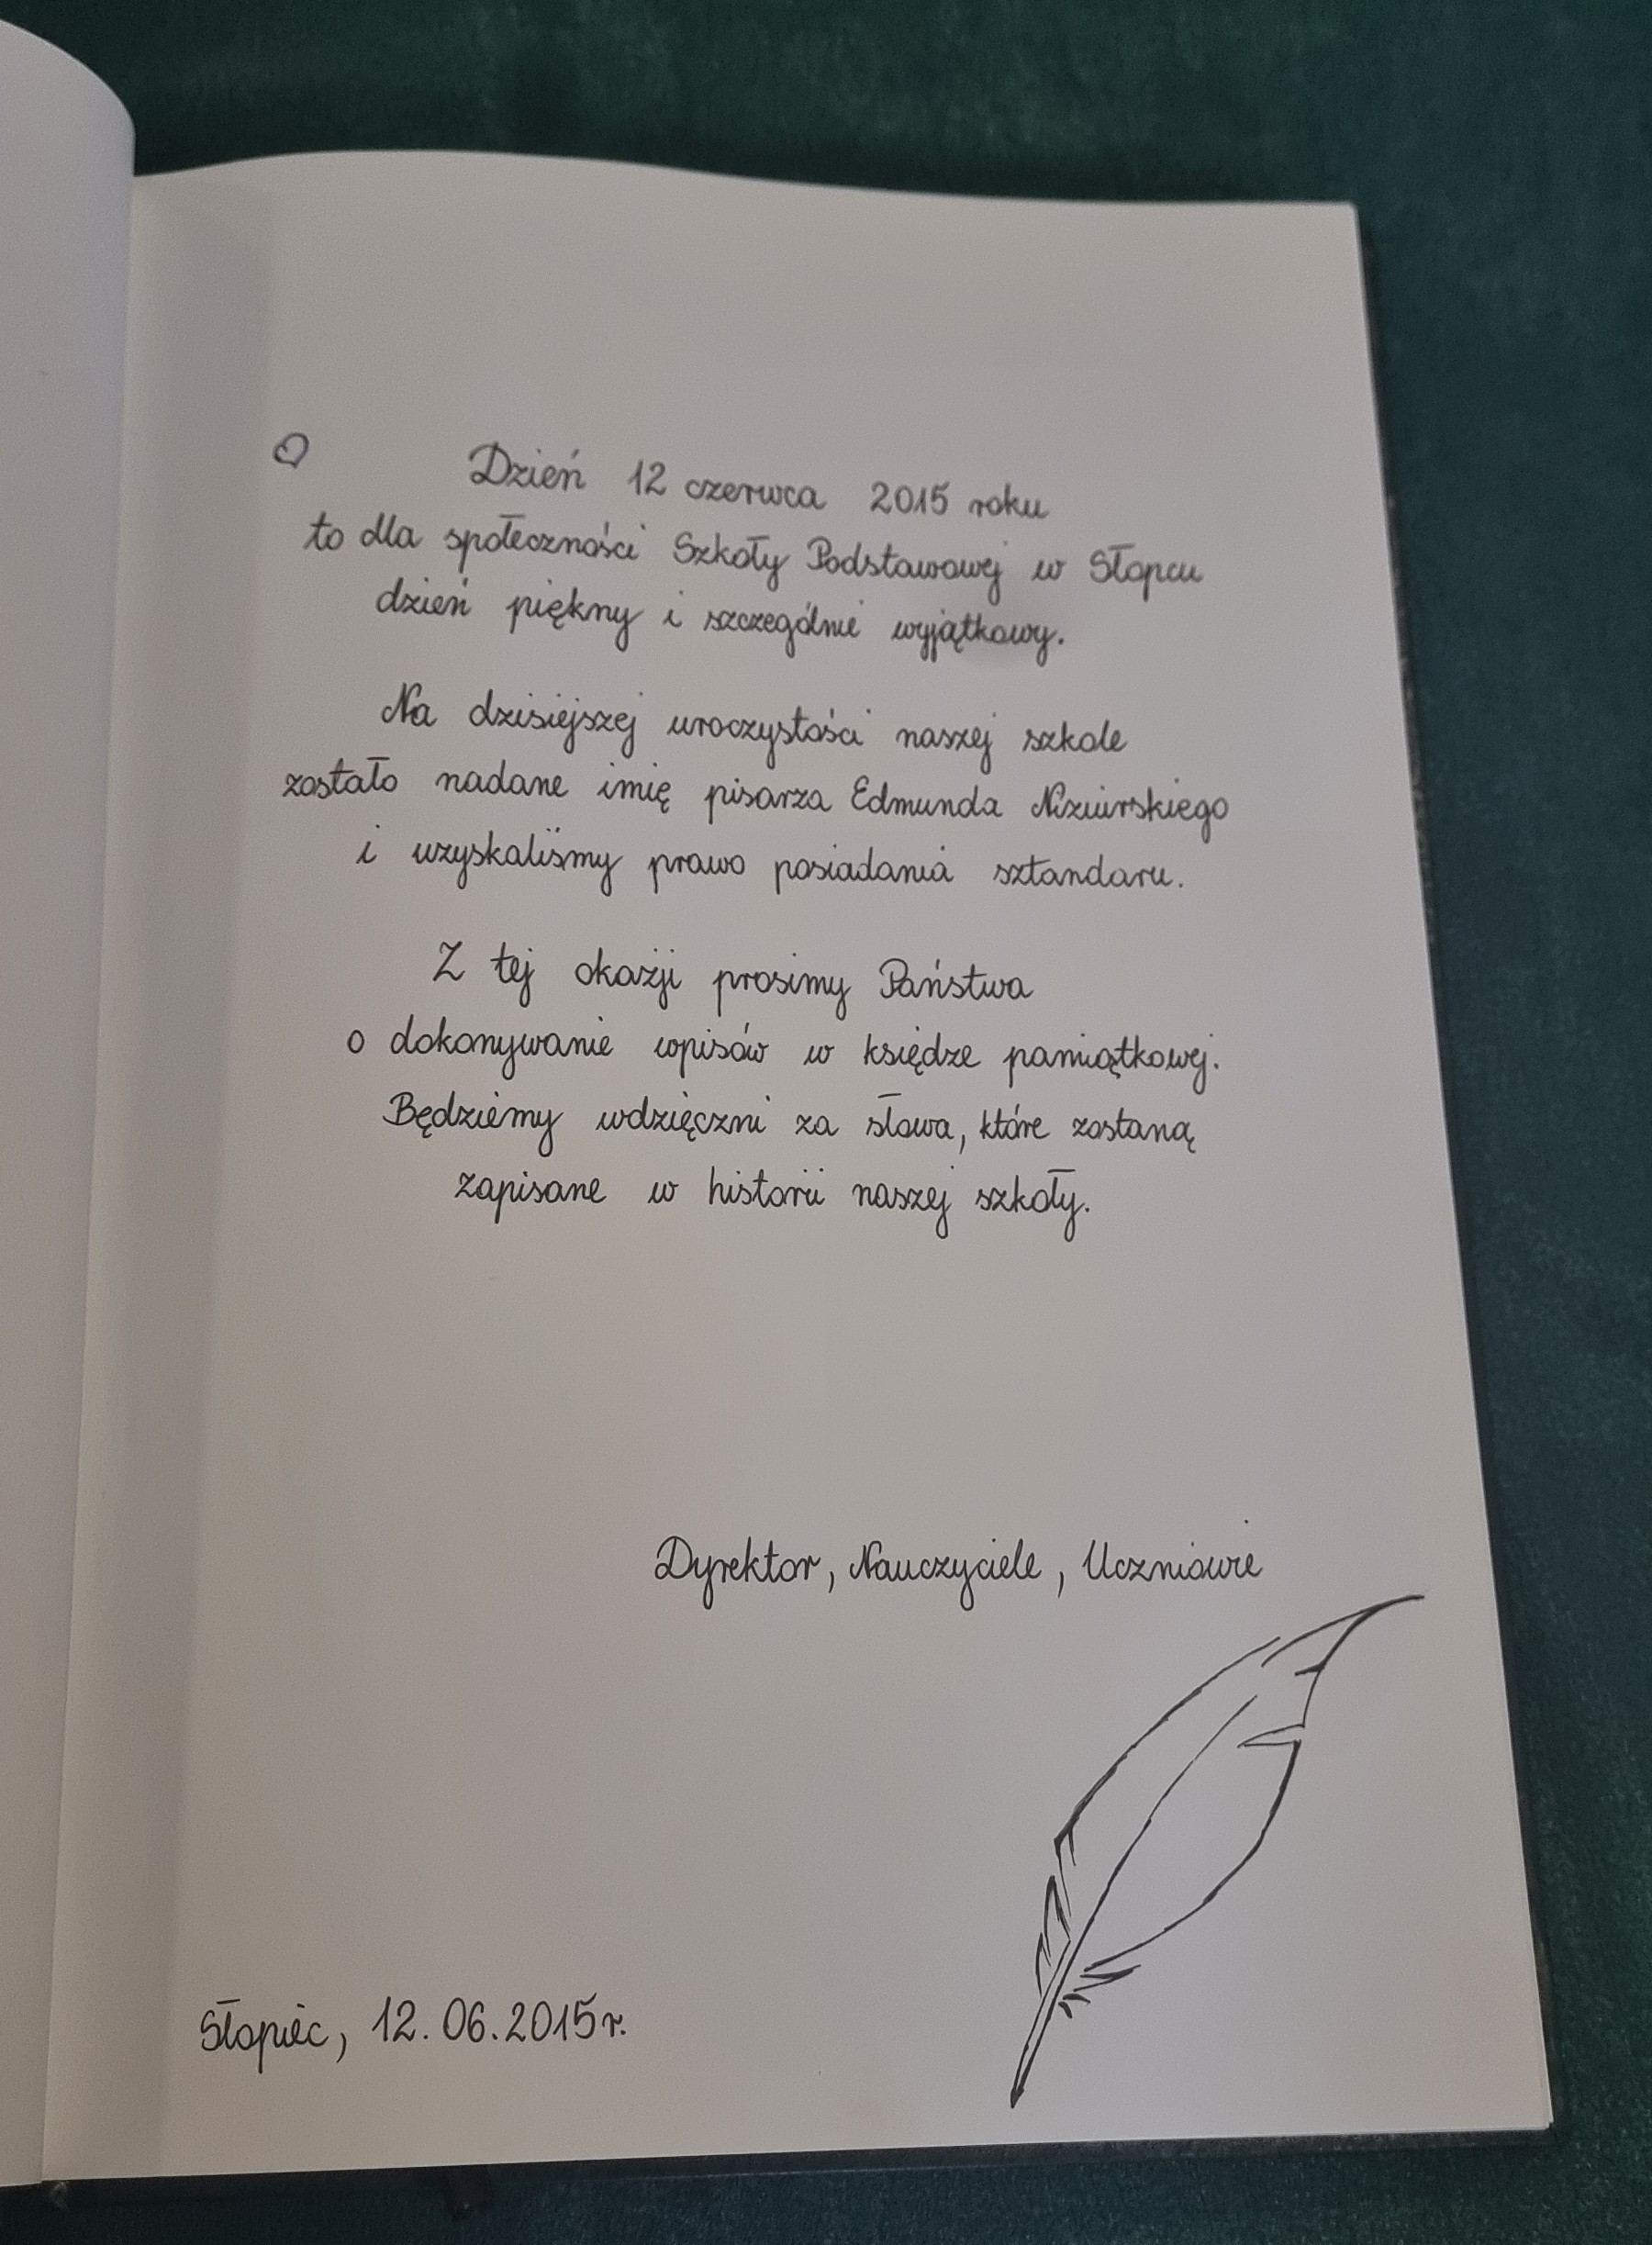 Dzień 12 czerwca 2015 roku
to dla społeczności Szkoły Podstawowej w Słopcu
dzień piękny i szczególnie wyjątkowy.
Na dzisiejszej uroczystości naszej szkole
zostało nadane imię pisarza Edmunda Niziurskiego
i uzyskaliśmy prawo posiadania sztandaru.
Z tej okazji prosimy Państwa
o dokonywanie wpisów w księdze pamiątkowej.
Będziemy wdzięczni za słowa, które zostaną
zapisane w historii naszej szkoły.
Dyrektor, Nauczyciele, Uczniowie
Słopiec, 12.06.2015r.